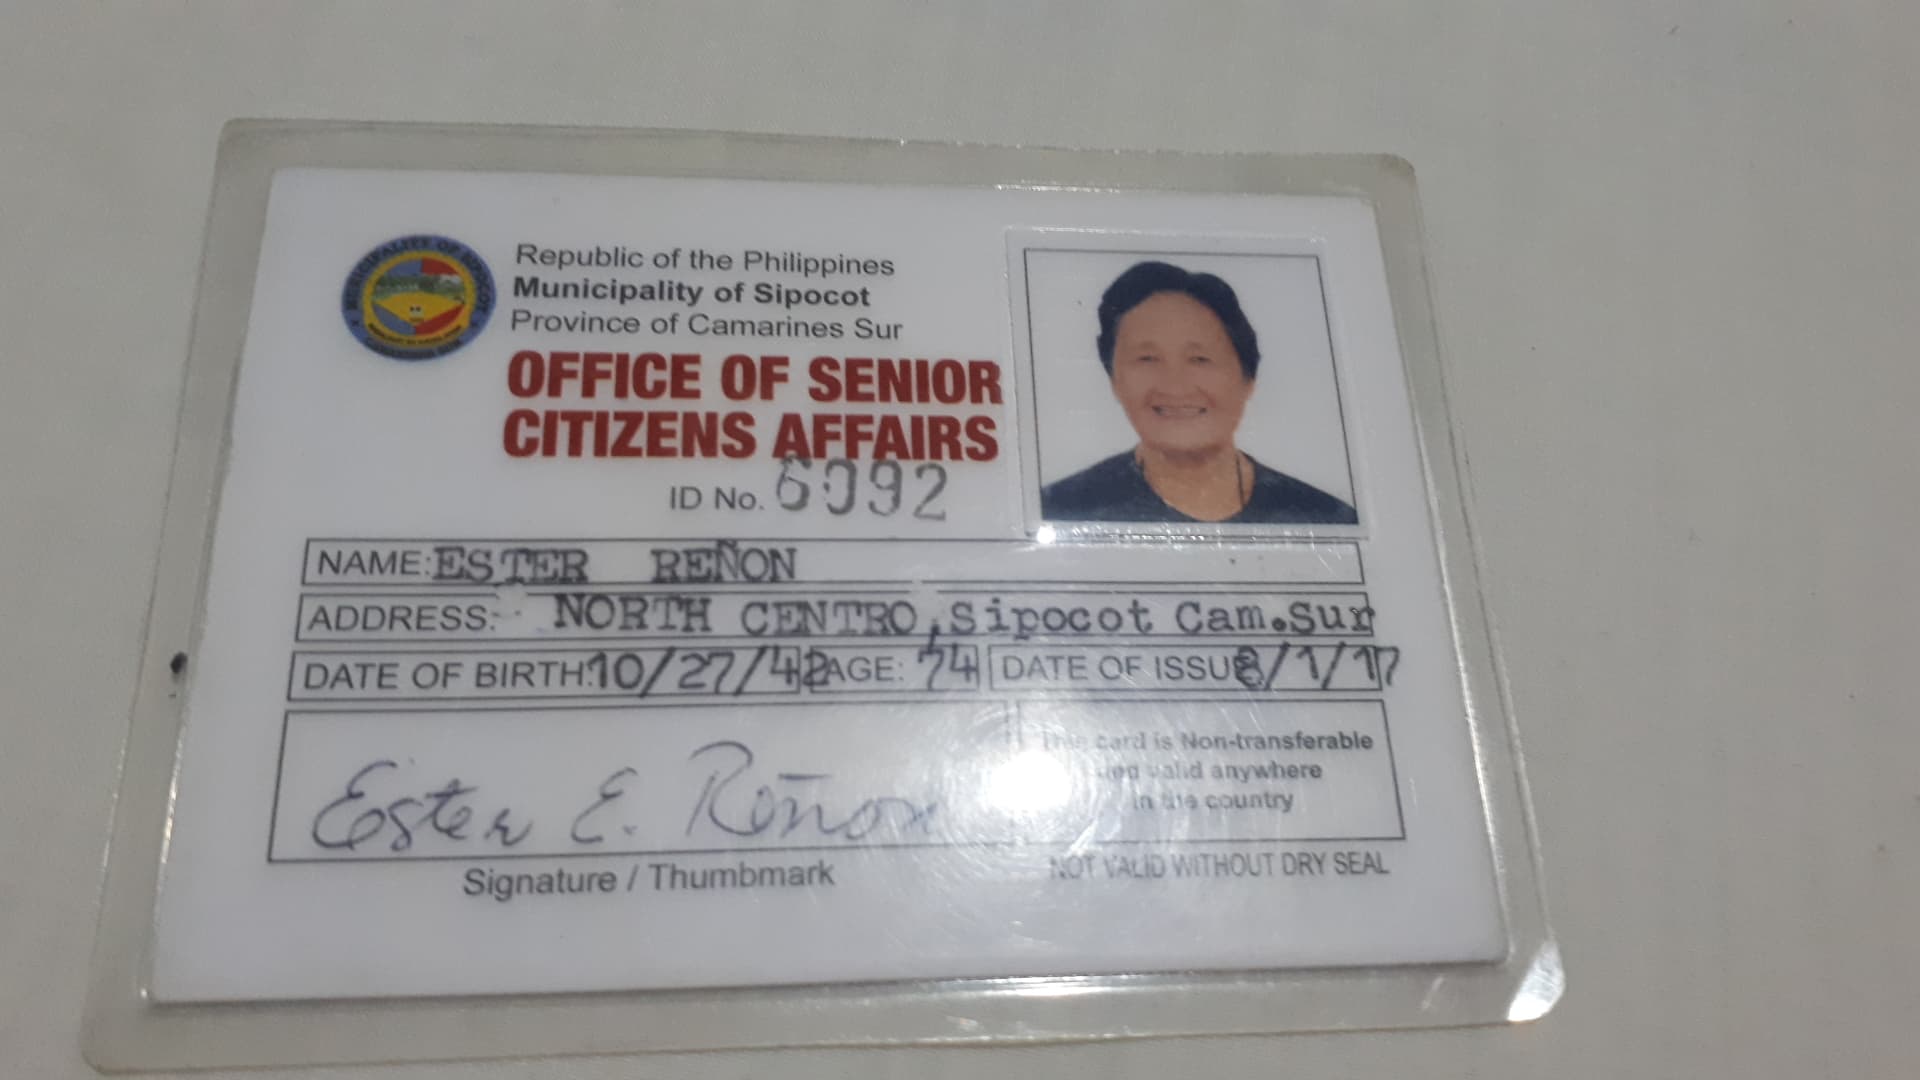 MUNICIPALITY OF SIPOCOT
Republic of the Philippines
Municipality of Sipocot
Province of Camarines Sur
OFFICE OF SENIOR
CITIZENS AFFAIRS
ID No. 6092
NAME: ESTER REÑON
ADDRESS: NORTH CENTRO, Sipocot Cam.Sur
DATE OF BIRTH: 10/27/42 AGE: 74 DATE OF ISSUE 8/1/17
This card is Non-transferable
and valid anywhere
in the country
Ester E. Reñon
Signature / Thumbmark
NOT VALID WITHOUT DRY SEAL